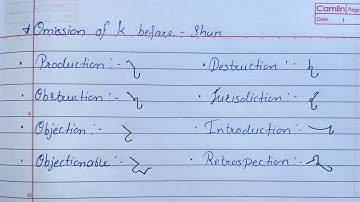 Camlin Page
Date /
* Omission of k before - Shun
• Production :-
• Destruction :-
• Obstruction :-
• Jurisdiction :-
• Objection :-
• Introduction :-
• Objectionable :-
• Retrospection :-